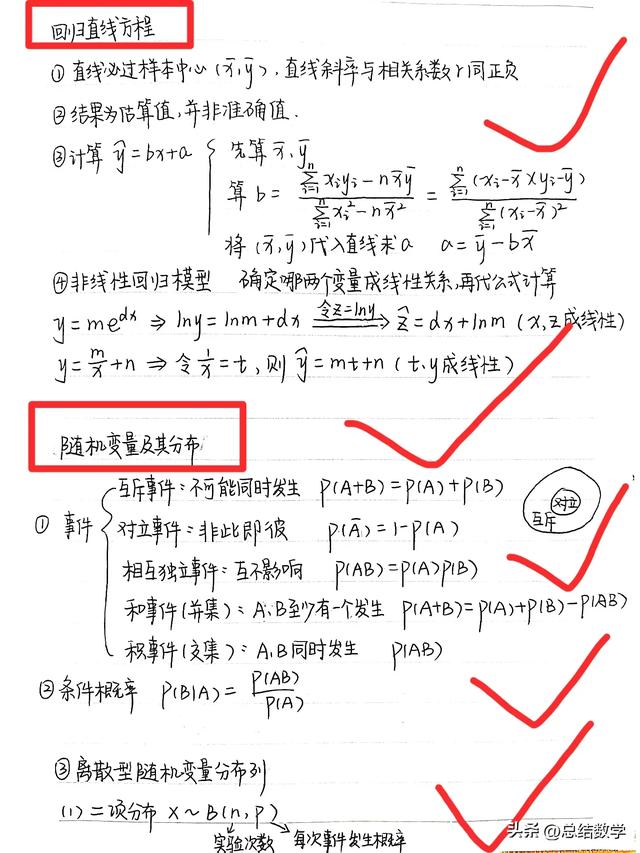 回归直线方程
① 直线必过样本中心 (x̄,ȳ), 直线斜率与相关系数 r 同正负
② 结果为估算值, 并非准确值.
③ 计算 ŷ=bx+a { 先算 x̄,ȳ
算 b = (∑_{i=1}^{n} xᵢyᵢ - n x̄ȳ) / (∑_{i=1}^{n} xᵢ² - n x̄²) = (∑_{i=1}^{n} (xᵢ-x̄)(yᵢ-ȳ)) / (∑_{i=1}^{n} (xᵢ-x̄)²)
将 (x̄,ȳ) 代入直线求 a a=ȳ-bx̄
④ 非线性回归模型 确定哪两个变量成线性关系, 再代公式计算
y=me^{dx} ⇒ lny=lnm+dx ⟹(令z=lny) ẑ=dx+lnm (x,z成线性)
y=m/x+n ⇒ 令 1/x=t, 则 ŷ=mt+n (t、y成线性)
随机变量及其分布
① 事件 { 互斥事件: 不可能同时发生 P(A+B)=P(A)+P(B)
对立事件: 非此即彼 P(Ā)=1-P(A)
对立
互斥
相互独立事件: 互不影响 P(AB)=P(A)P(B)
和事件(并集): A、B至少有一个发生 P(A+B)=P(A)+P(B)-P(AB)
积事件(交集): A、B同时发生 P(AB)
② 条件概率 P(B|A)= P(AB)/P(A)
③ 离散型随机变量分布列
(1) 二项分布 X~B(n,p)
实验次数 每次事件发生概率
头条 @总结数学